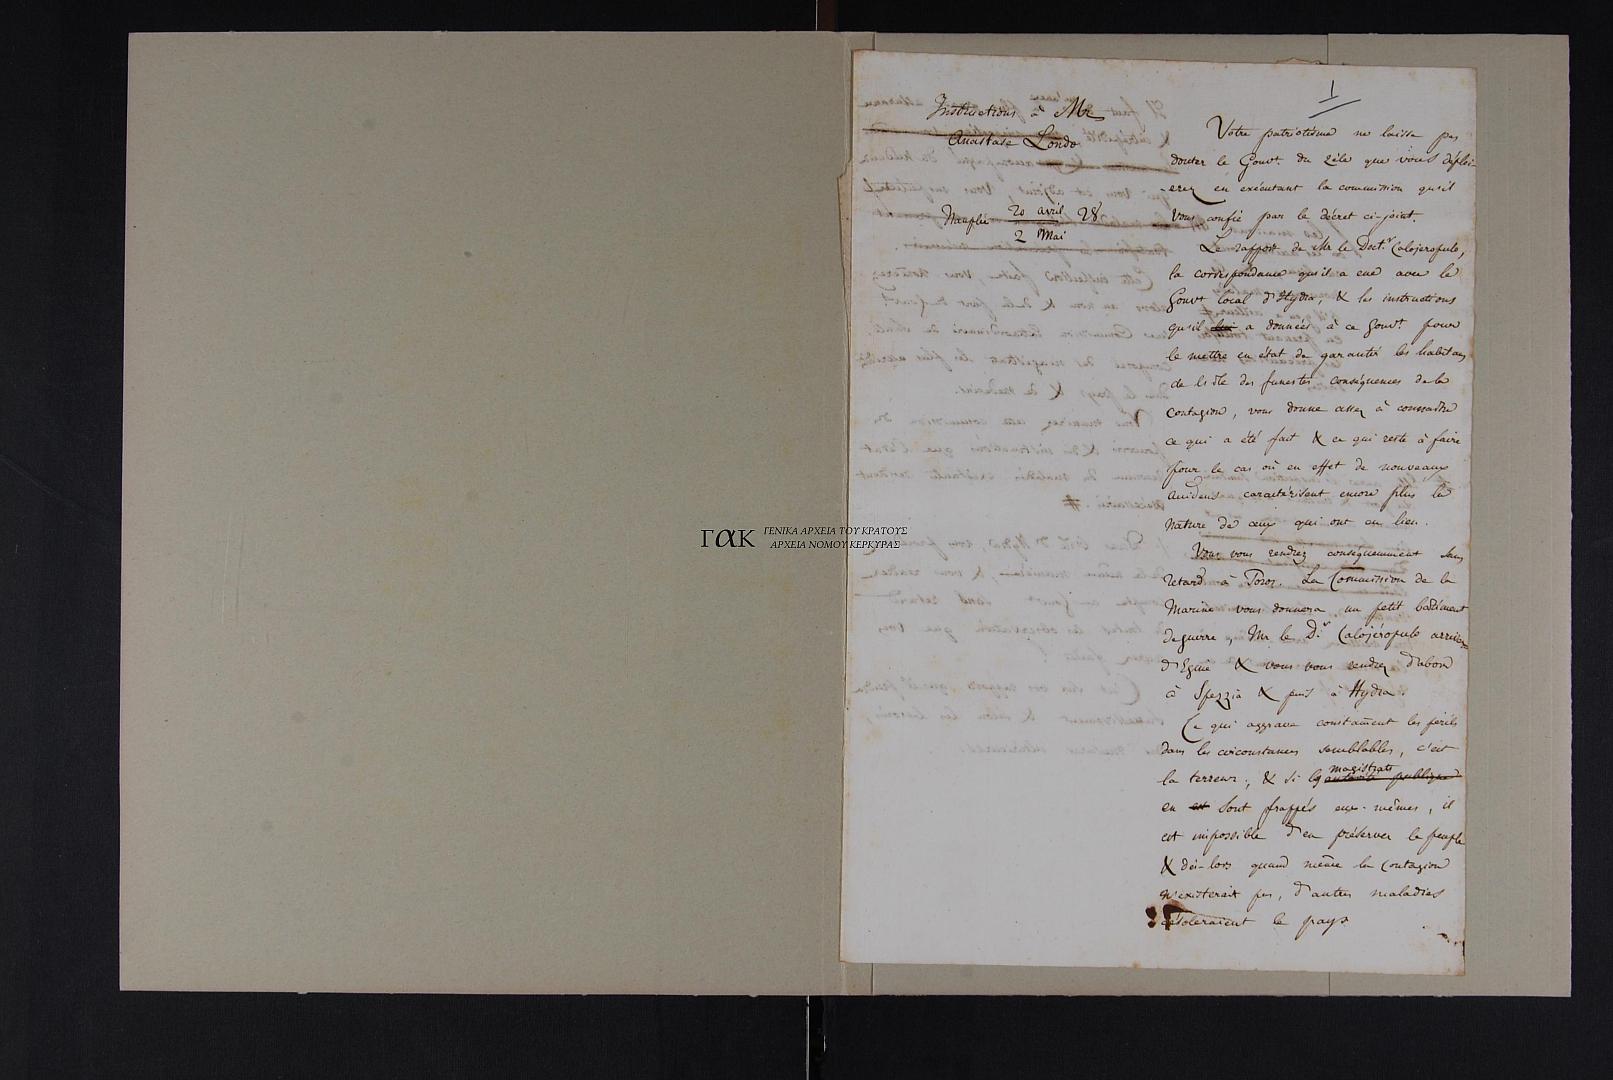 1
Instructions à Mr
Anastase Londo
Nauplie 20 avril 28
2 Mai
Votre patriotisme ne laisse pas
douter le Gouvt du zèle que vous déploi-
-erez en exécutant la commission qu'il
vous confie par le décret ci-joint.
Le rapport de Mr le Doctr Calojeropulo,
la correspondance qu'il a eue avec le
Gouvt local d'Hydra, & les instructions
qu'il a données à ce Gouvt pour
le mettre en état de garantir les habitans
de l'île des funestes conséquences de la
contagion, vous donne assez à connaître
ce qui a été fait & ce qui reste à faire
pour le cas où en effet de nouveaux
accidens caractérisent encore plus la
nature de ceux qui ont eu lieu.
Vous vous rendrez conséquemment sans
retard à Poros. La Commission de la
Marine vous donnera un petit bâtiment
de guerre, Mr le Dr Calojéropulo arrivera
d'Egine & vous vous rendrez d'abord
à Spezzia & puis à Hydra.
Ce qui aggrave constament les périls
dans les circonstances semblables, c'est
la terreur; & si les magistrats autorité publique
en est sont frappés eux-mêmes, il
est impossible d'en préserver le peuple
& dès-lors quand même la contagion
n'existerait pas, d'autres maladies
désoleraient le pays
ΓΑΚ ΓΕΝΙΚΑ ΑΡΧΕΙΑ ΤΟΥ ΚΡΑΤΟΥΣ
ΑΡΧΕΙΑ ΝΟΜΟΥ ΚΕΡΚΥΡΑΣ